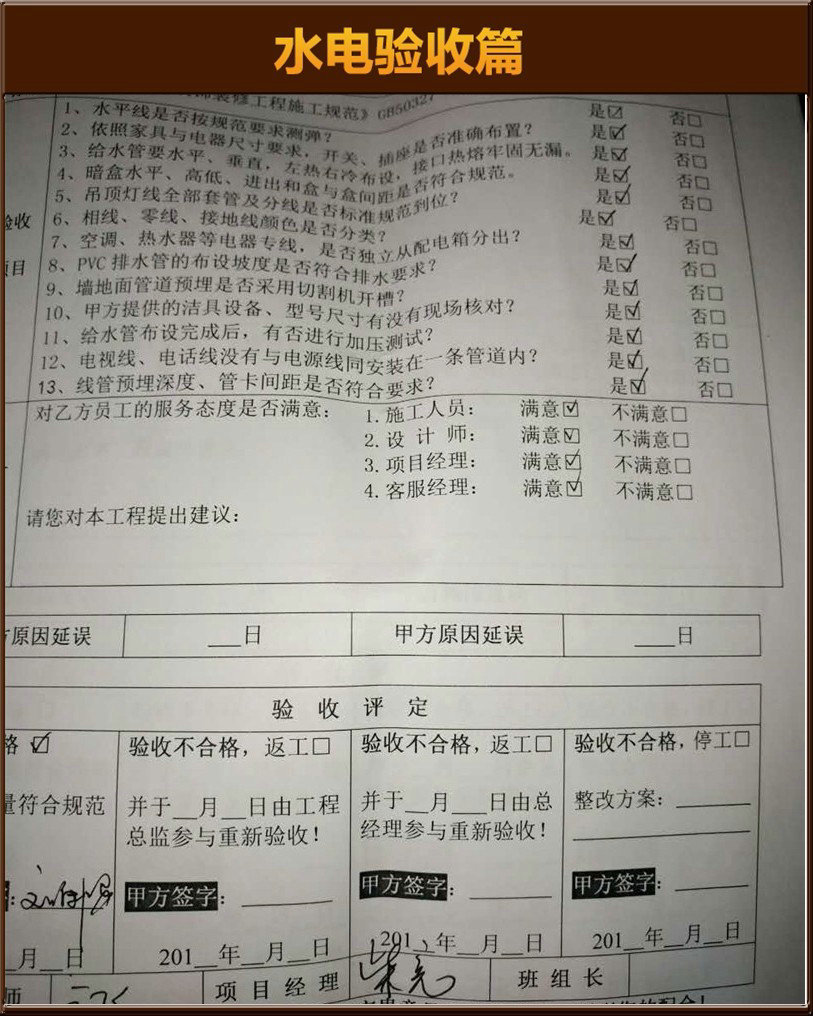 水电验收篇
装修工程施工规范》GB50327
1、水平线是否按规范要求测弹？ 是☑ 否□
2、依照家具与电器尺寸要求，开关、插座是否准确布置？ 是☑ 否□
3、给水管要水平、垂直，左热右冷布设，接口热熔牢固无漏。 是☑ 否□
4、暗盒水平、高低、进出和盒与盒间距是否符合规范。 是☑ 否□
5、吊顶灯线全部套管及分线是否标准规范到位？ 是☑ 否□
验收 6、相线、零线、接地线颜色是否分类？ 是☑ 否□
7、空调、热水器等电器专线，是否独立从配电箱分出？ 是☑ 否□
项目 8、PVC排水管的布设坡度是否符合排水要求？ 是☑ 否□
9、墙地面管道预埋是否采用切割机开槽？ 是☑ 否□
10、甲方提供的洁具设备、型号尺寸有没有现场核对？ 是☑ 否□
11、给水管布设完成后，有否进行加压测试？ 是☑ 否□
12、电视线、电话线没有与电源线同安装在一条管道内？ 是☑ 否□
13、线管预埋深度、管卡间距是否符合要求？ 是☑ 否□
对乙方员工的服务态度是否满意： 1.施工人员： 满意☑ 不满意□
2.设计师： 满意☑ 不满意□
3.项目经理： 满意☑ 不满意□
4.客服经理： 满意☑ 不满意□
请您对本工程提出建议：
方原因延误 ___日 甲方原因延误 ___日
验收评定
格☑ 验收不合格，返工□ 验收不合格，返工□ 验收不合格，停工□
量符合规范 并于__月__日由工程 并于__月___日由总 整改方案：______
总监参与重新验收！ 经理参与重新验收！
甲方签字：______ 甲方签字：______ 甲方签字：______
_月__日 201__年__月__日 201__年__月__日 201__年__月__日
师 项目经理 柴亮 班组长